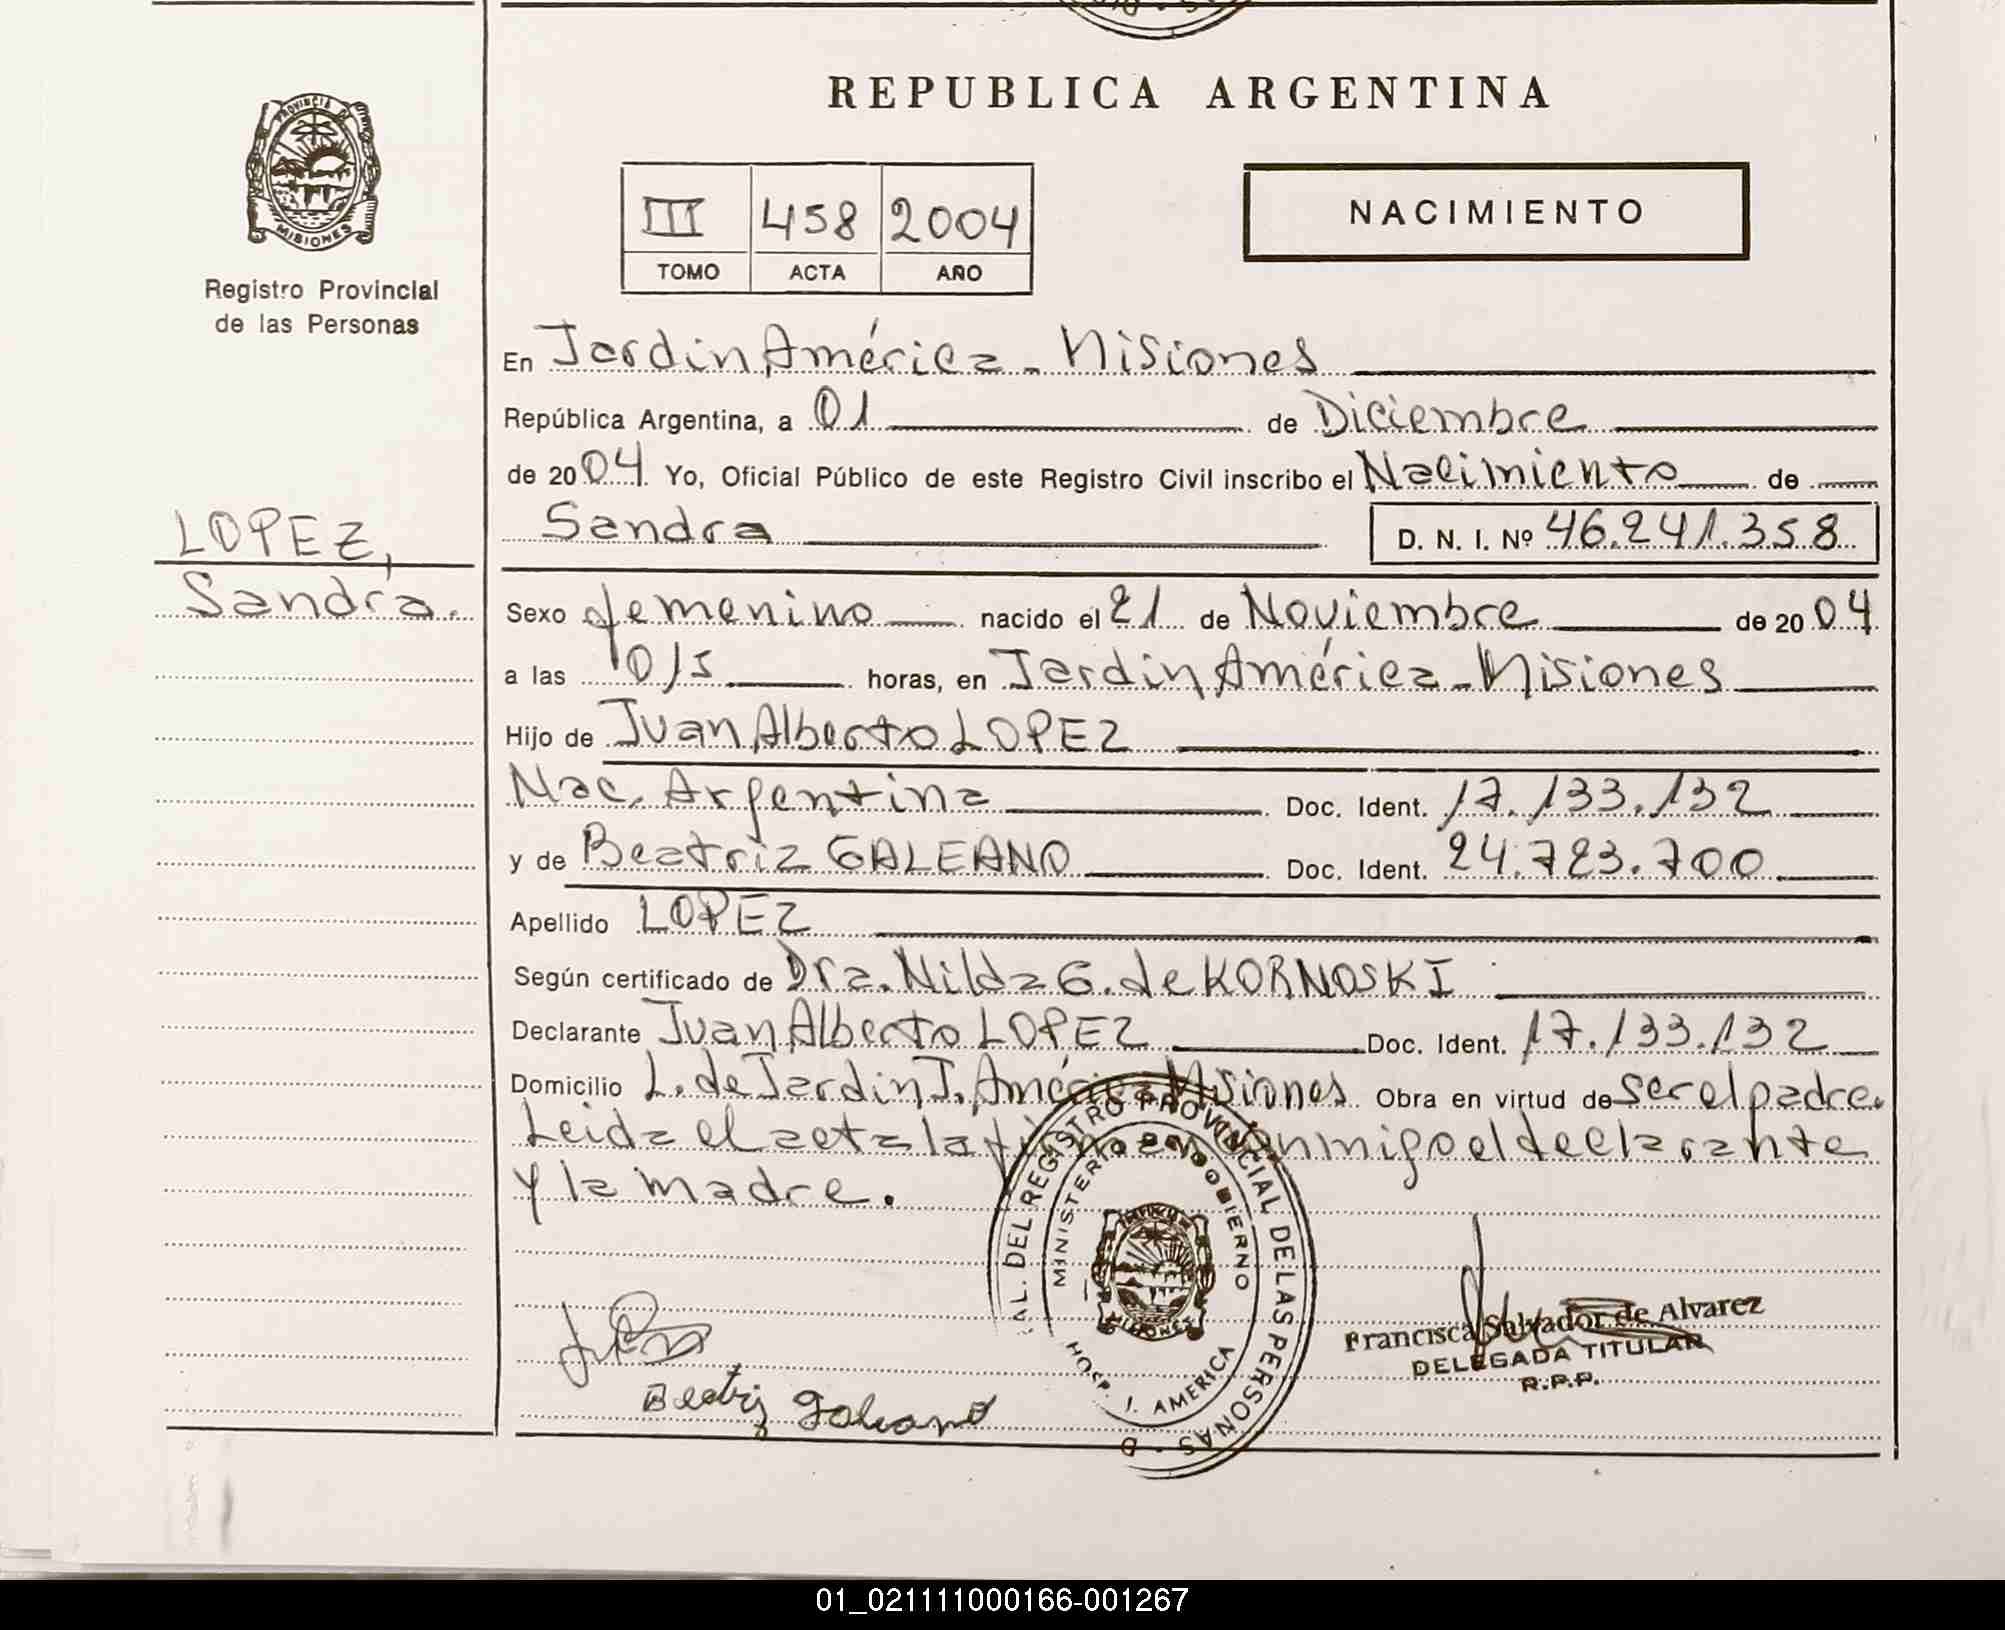 REPUBLICA ARGENTINA
PROVINCIA DE
MISIONES
Registro Provincial
de las Personas
III 458 2004
TOMO ACTA AÑO
NACIMIENTO
LOPEZ,
Sandra.
En Jardin América - Misiones
República Argentina, a 01 de Diciembre
de 2004 Yo, Oficial Público de este Registro Civil inscribo el Nacimiento de
Sandra D. N. I. Nº 46.241.358
Sexo femenino nacido el 21 de Noviembre de 2004
a las 0/5 horas, en Jardin América - Misiones
Hijo de Juan Alberto LOPEZ
Nac. Argentina Doc. Ident. 17.133.132
y de Beatriz GALEANO Doc. Ident. 24.723.700
Apellido LOPEZ
Según certificado de Dra. Nilda G. de KORNOSKI
Declarante Juan Alberto LOPEZ Doc. Ident. 17.133.132
Domicilio L. de Jardin J. América Misiones Obra en virtud de ser el padre.
Leida el acta la conmigo el declarante
y la madre.
DEL REGISTRO PROVINCIAL DE LAS PERSONAS
MINISTERIO DE GOBIERNO
MISIONES
HOSP. J. AMERICA
Beatriz Galeano
Francisca Salvador de Alvarez
DELEGADA TITULAR
R.P.P.
01_021111000166-001267